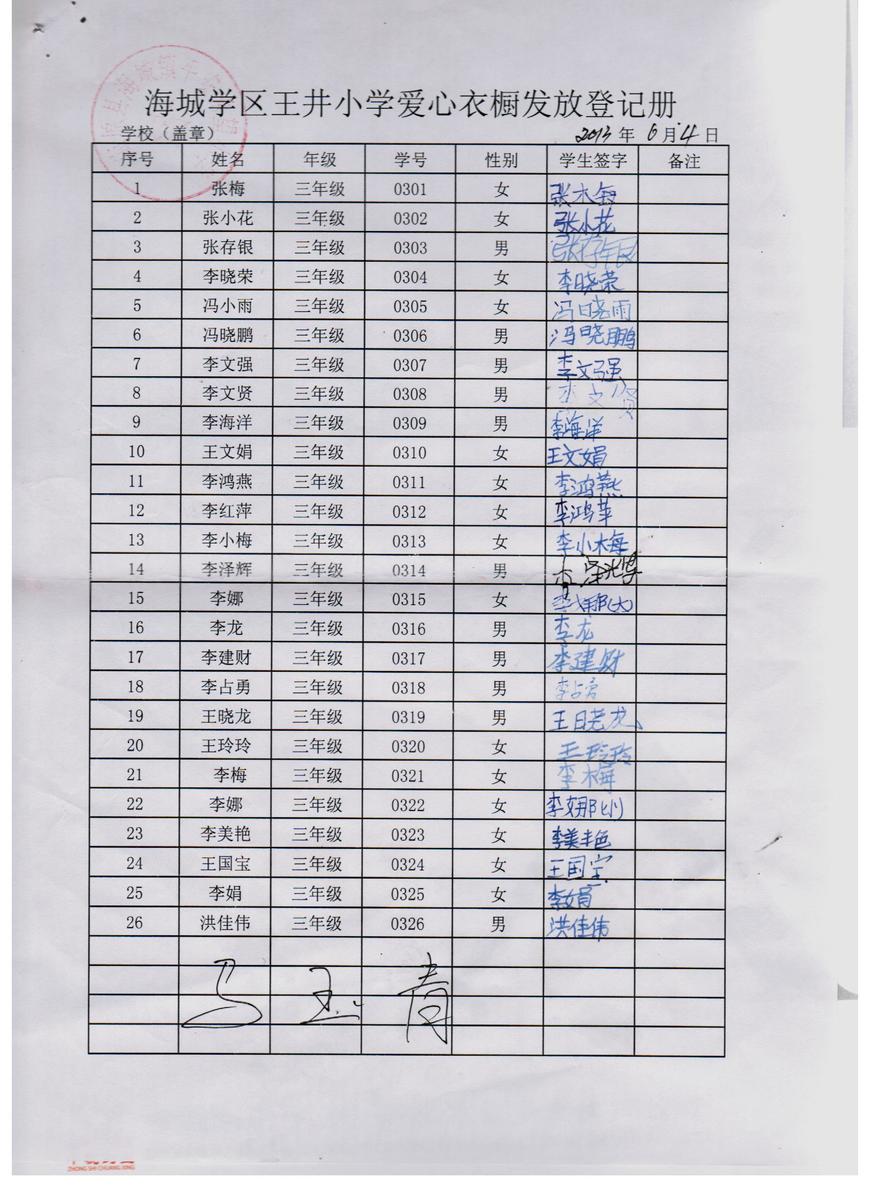 海城学区王井小学爱心衣橱发放登记册
学校（盖章） 2013 年 6 月 4 日
序号 姓名 年级 学号 性别 学生签字 备注
1 张梅 三年级 0301 女
2 张小花 三年级 0302 女 张小花
3 张存银 三年级 0303 男 张存银
4 李晓荣 三年级 0304 女 李晓荣
5 冯小雨 三年级 0305 女 冯晓雨
6 冯晓鹏 三年级 0306 男 冯晓鹏
7 李文强 三年级 0307 男 李文强
8 李文贤 三年级 0308 男 李文贤
9 李海洋 三年级 0309 男 李海洋
10 王文娟 三年级 0310 女 王文娟
11 李鸿燕 三年级 0311 女 李鸿燕
12 李红萍 三年级 0312 女 李鸿萍
13 李小梅 三年级 0313 女 李小梅
14 李泽辉 三年级 0314 男 李泽辉
15 李娜 三年级 0315 女 李娜(大)
16 李龙 三年级 0316 男 李龙
17 李建财 三年级 0317 男 李建财
18 李占勇 三年级 0318 男
19 王晓龙 三年级 0319 男 王晓龙
20 王玲玲 三年级 0320 女 王玲玲
21 李梅 三年级 0321 女 李梅
22 李娜 三年级 0322 女 李娜(小)
23 李美艳 三年级 0323 女 李美艳
24 王国宝 三年级 0324 女 王国宝
25 李娟 三年级 0325 女 李娟
26 洪佳伟 三年级 0326 男 洪佳伟
马玉青
ZHONG SHI CHUANG XING